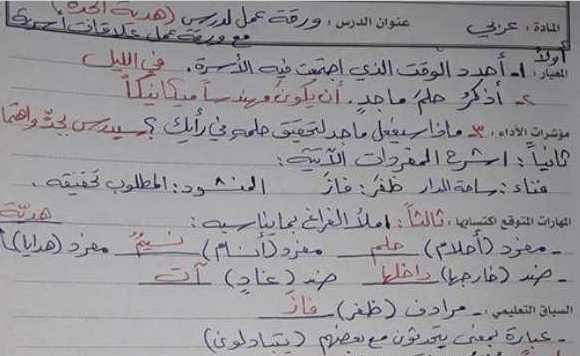 المادة: عربي عنوان الدرس: ورقة عمل لدرس (هدية الجدة)
مع ورقة عمل علاقات أسرية
أولاً
المعيار: ١- أحدد الوقت الذي اجتمعت فيه الأسرة. في الليل
٢- أذكر حلم ماجد. أن يكون مهندساً ميكانيكياً
مؤشرات الأداء: ٣- ماذا سيفعل ماجد لتحقيق حلمه في رأيك؟ سيدرس بجد واهتما
ثانياً: اشرح المفردات الآتية:
فناء: ساحة الدار ظفر: فاز المنشود: المطلوب تحقيقه.
المهارات المتوقع اكتسابها: ثالثاً: املأ الفراغ بما يناسبه: هديّة
- مفرد (أحلام) حلم مفرد (أنسام) نسيمٌ مفرد (هدايا)
- ضد (خارجها) داخلها ضد (غادٍ) آت
السياق التعليمي: - مرادف (ظفر) فاز
- عبارة بمعنى يتحدثون مع بعضهم (يتبادلون)